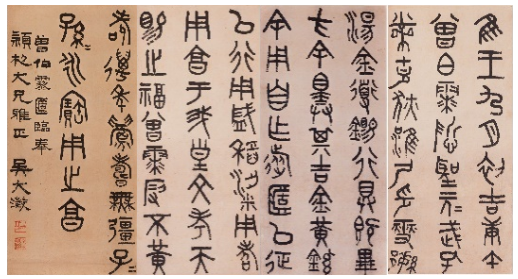 隹王九月初吉庚午
曾白霥哲聖元武孔
黹克狄淮尸印燮繁
湯金道錫行具既
方余擇其吉金黃
余用自乍旅匿以征
以行用盛稻粱用孝
用享于我皇文考天
賜之福曾霥叚不黃
耇萬年眉壽無疆子=
孫=永寶用之享
曾伯霥匿臨奉
大兄雅正 吳大澂